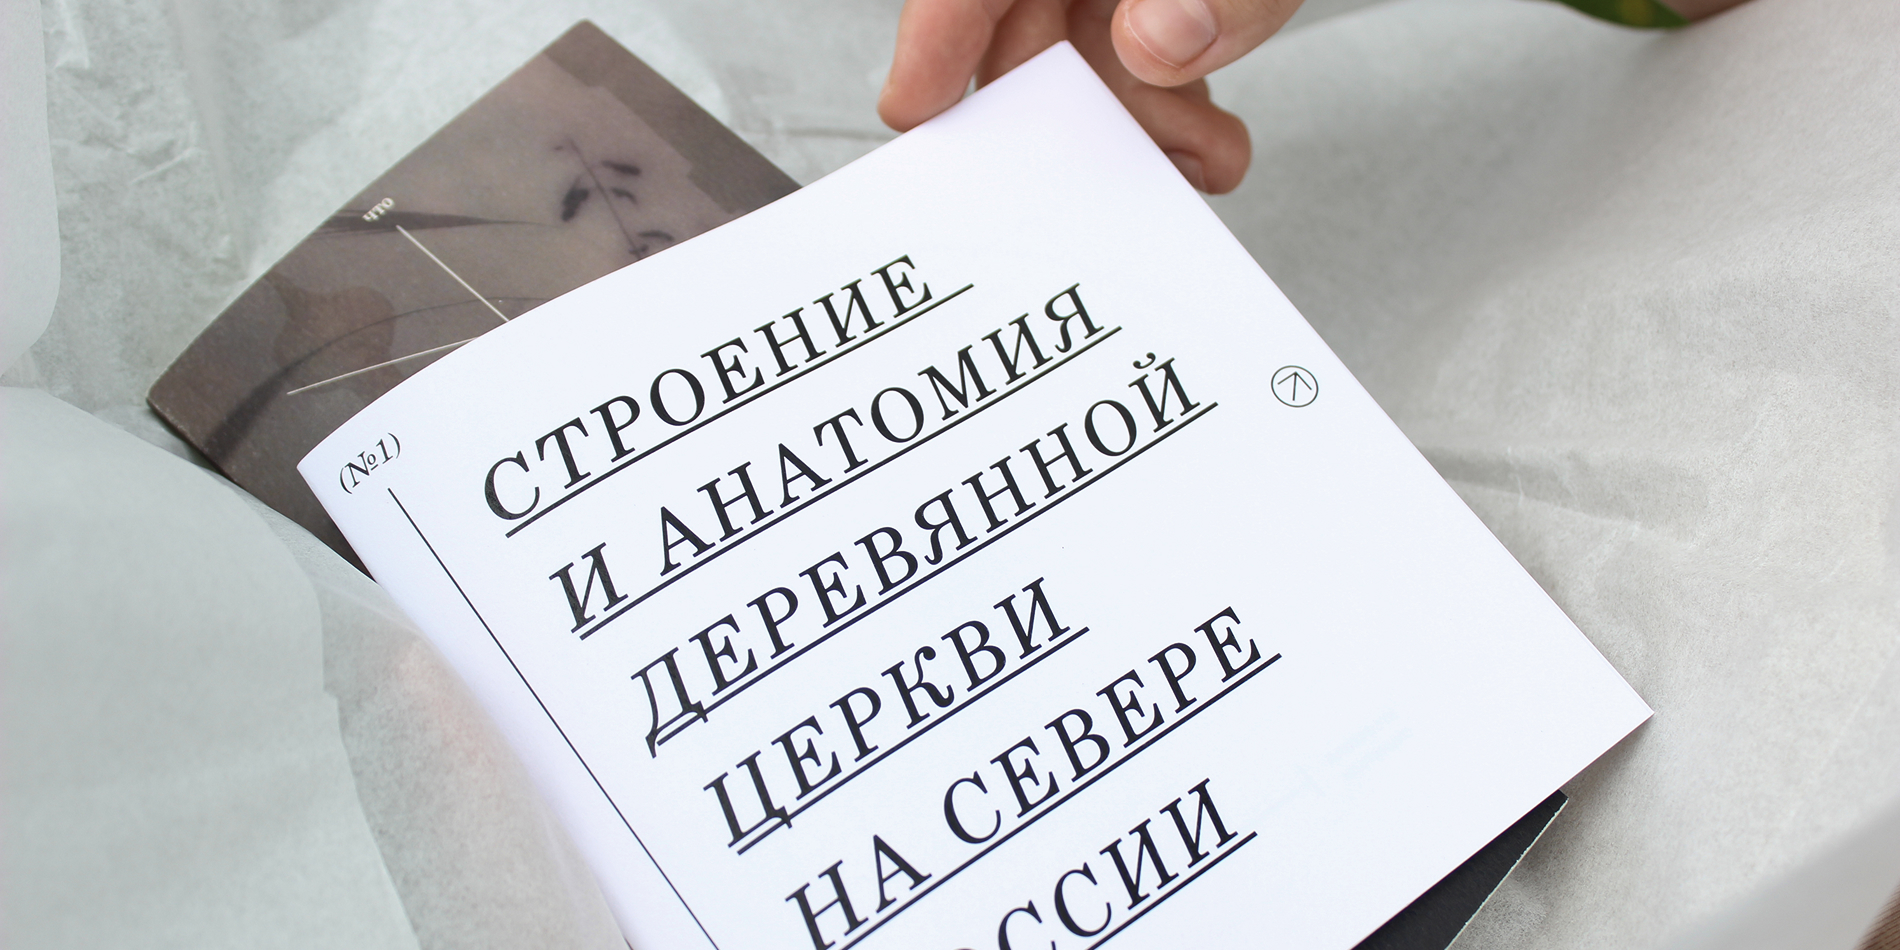 что
(№1)
СТРОЕНИЕ
И АНАТОМИЯ
ДЕРЕВЯННОЙ
ЦЕРКВИ
НА СЕВЕРЕ